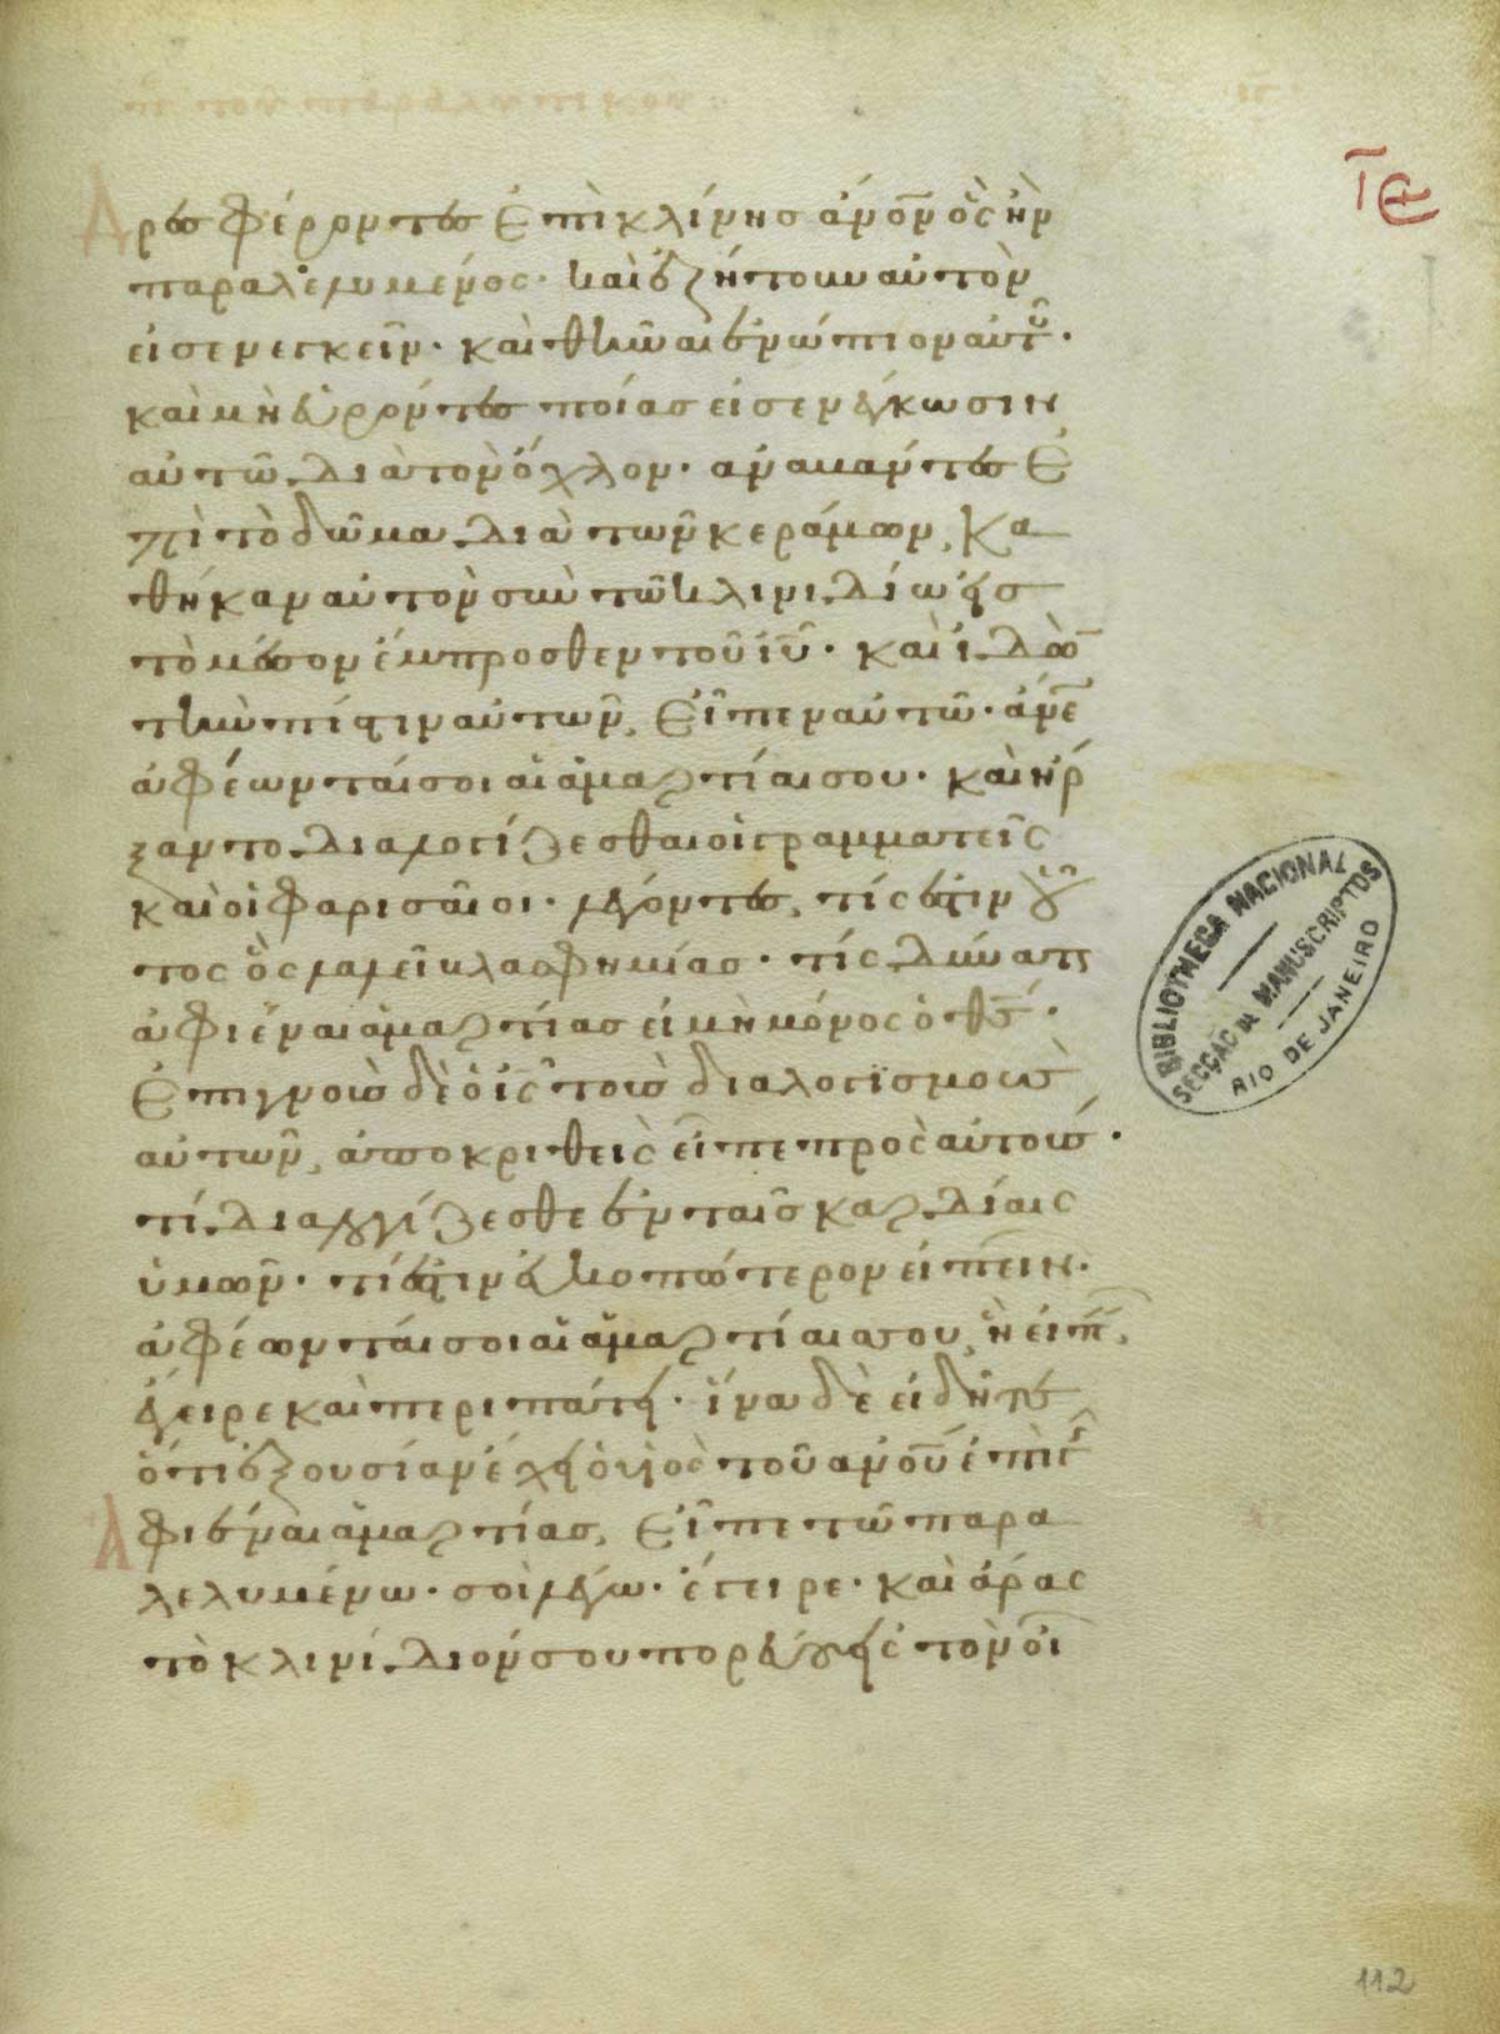 πε του παραλυτικου
Δρες φέροντες ἐπὶ κλίνης ἀνον ὃς ἦν
παραλελυμένος· καὶ ἐζήτουν αὐτὸν
εἰσενεγκεῖν· καὶ θῆναι ἐνώπιον αὐτοῦ·
καὶ μὴ εὑρόντες ποίας εἰσενέγκωσιν
αὐτῶ διὰ τὸν ὄχλον· ἀναβάντες ἐ
πὶ τὸ δῶμα διὰ τῶν κεράμων, κα
θῆκαν αὐτὸν σὺν τῶ κλινιδίω εἰς
τὸ μέσον ἔμπροσθεν τοῦ ἰῦ· καὶ ἰδὼν
τὴν πίστιν αὐτῶν, εἶπεν αὐτῶ· ἄνε
ἀφέωνταί σοι αἱ ἁμαρτίαι σου· καὶ ἤρ
ξαντο διαλογίζεσθαι οἱ γραμματεῖς
καὶ οἱ φαρισαῖοι· λέγοντες, τίς ἐστιν οὗ
τος ὃς λαλεῖ βλασφημίας· τίς δύναται
ἀφιέναι ἁμαρτίας εἰ μὴ μόνος ὁ θς·
ἐπιγνοὺς δὲ ὁ ἰς τοὺς διαλογισμοὺς
αὐτῶν, ἀποκριθεὶς εἶπε πρὸς αὐτούς·
τί διαλογίζεσθε ἐν ταῖς καρδίαις
ὑμῶν· τί ἐστιν εὐκοπώτερον εἰπεῖν·
ἀφέωνταί σοι αἱ ἁμαρτίαι σου, ἢ εἰπεῖν,
ἔγειρε καὶ περιπάτει· ἵνα δὲ εἰδῆτε
ὅτι ἐξουσίαν ἔχει ὁ υἱὸς τοῦ ἀνου ἐπὶ τῆς
Αφιέναι ἁμαρτίας, εἶπε τῶ παρα
λελυμένω· σοὶ λέγω· ἔγειρε· καὶ ἄρας
τὸ κλινίδιόν σου πορεύου εἰς τὸν οἶ
BIBLIOTHECA NACIONAL
SECÇÃO DE MANUSCRIPTOS
RIO DE JANEIRO
112